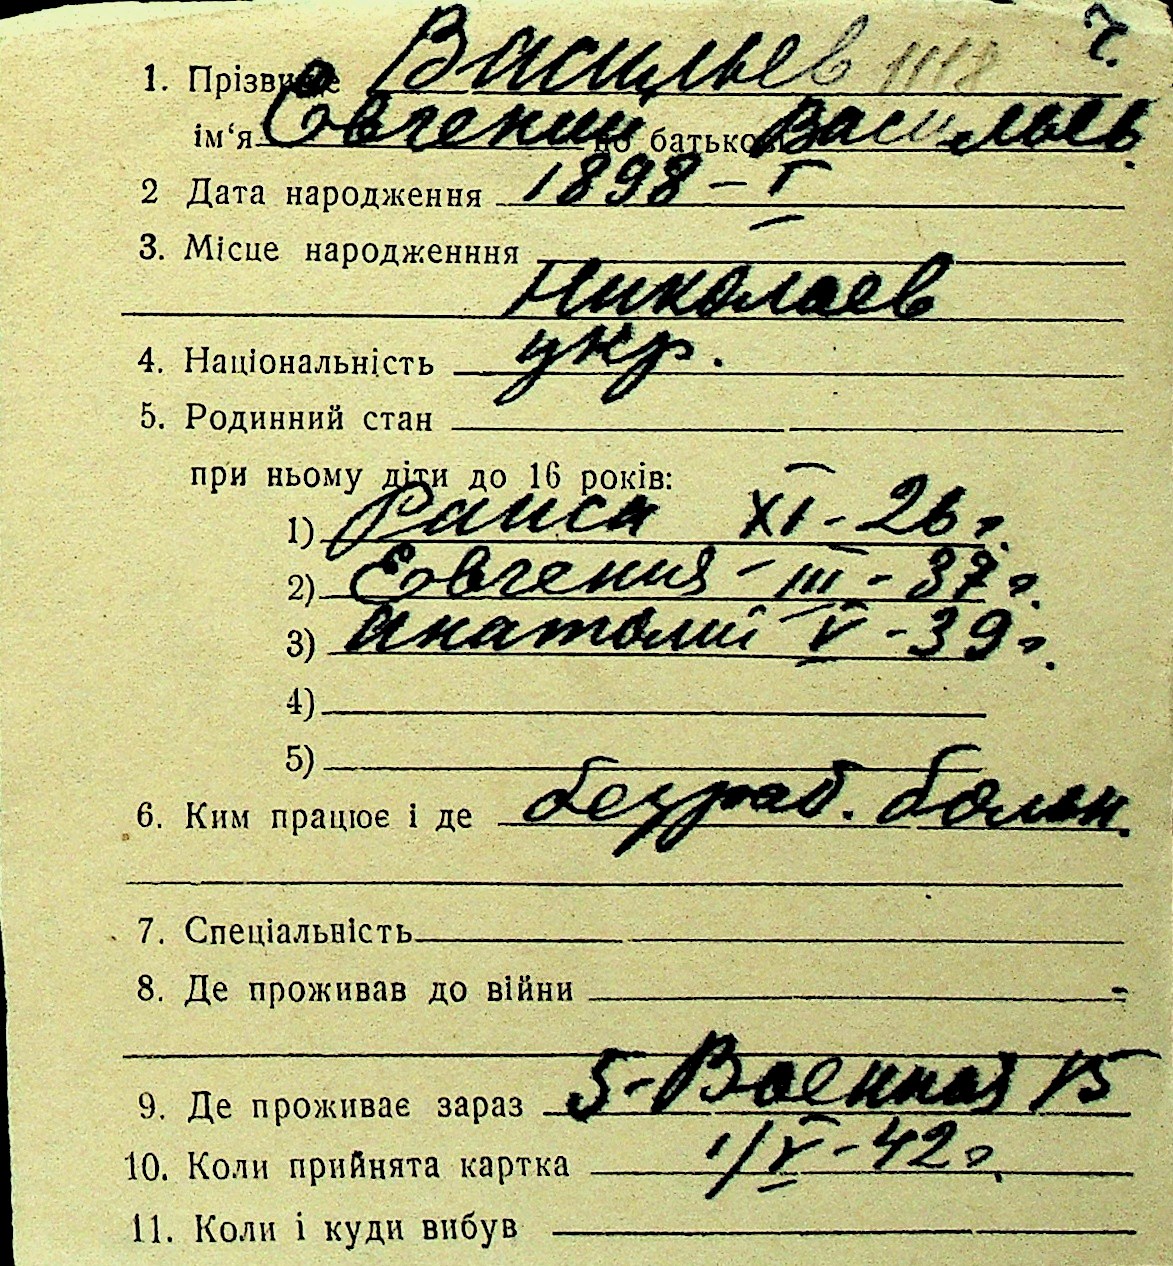 ч.
1. Прізвище Васильев
ім‘я Евгений по батькові Васильев.
2 Дата народження 1898 – I
3. Місце народженння
Николаев
4. Національність укр.
5. Родинний стан
при ньому діти до 16 років:
1) Раиса XI - 26 г.
2) Евгения - III - 37 г.
3) Анатолий V - 39 г.
4)
5)
6. Ким працює і де безраб. болен.
7. Спеціальність
8. Де проживав до війни
9. Де проживає зараз 5-Военная 15
10. Коли прийнята картка 1/V - 42 г.
11. Коли і куди вибув